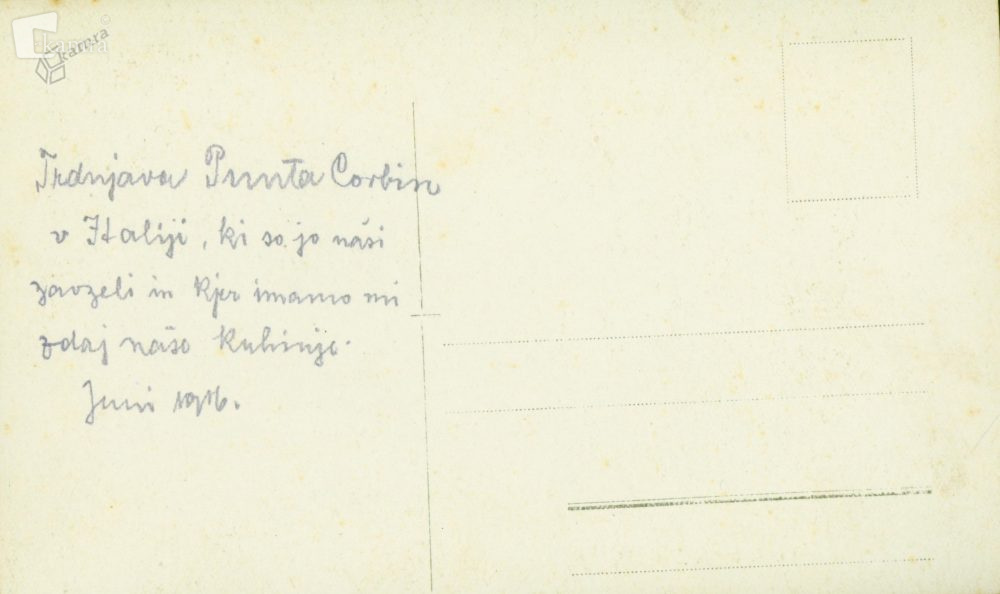 kamra
Trdnjava Punta Corbin
v Italiji, ki so jo naši
zavzeli in kjer imamo mi
zdaj naše kuhinje.
Juni 1916.